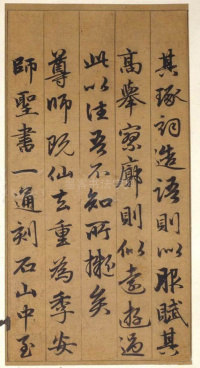 其琢詞造語則似服賦其
高舉寥廓則似遠遊過
此以往吾不知所擬矣
尊師既仙去重為季安
師聖書一通刻石山中至